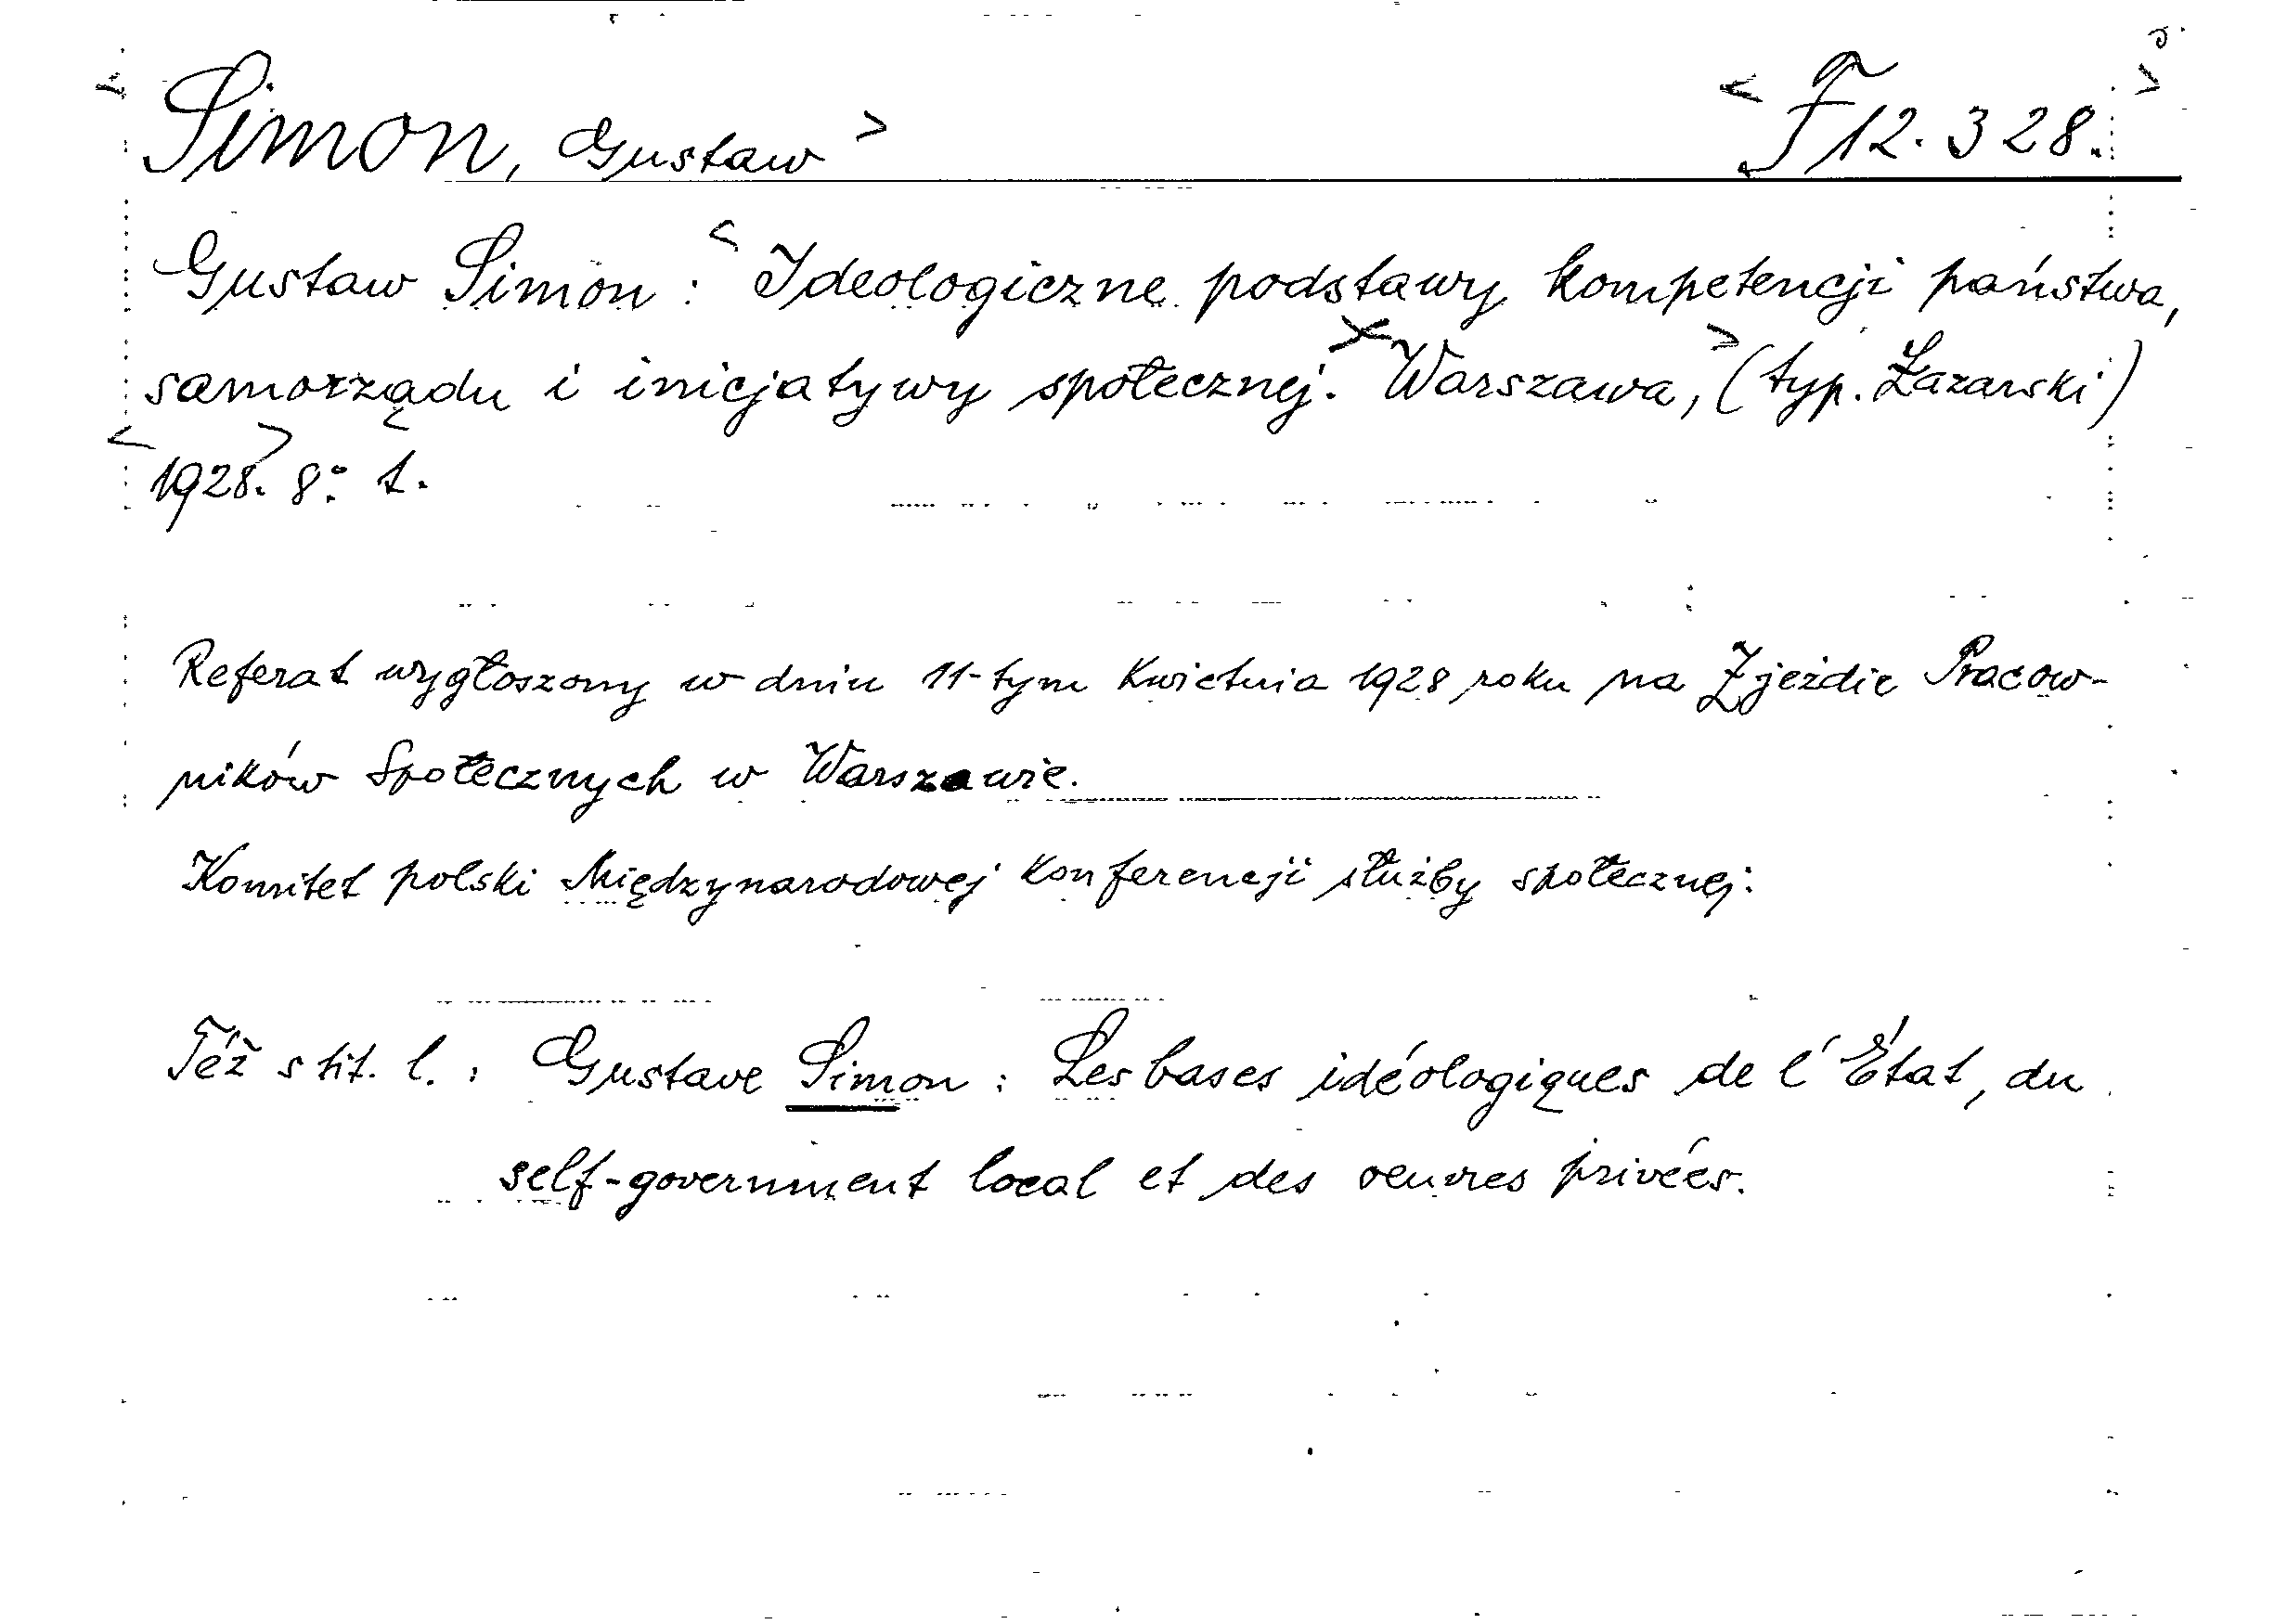 Simon, Gustaw F 12.328.
Gustaw Simon: Ideologiczne podstawy kompetencji państwa,
samorządu i inicjatywy społecznej. Warszawa, (typ. Łazarski)
1928. 8°. t.
Referat wygłoszony w dniu 11-tym kwietnia 1928 roku na Zjeździe Pracow-
ników Społecznych w Warszawie.
Komitet polski Międzynarodowej Konferencji służby społecznej:
Též s tit. l.: Gustave Simon: Les bases idéologiques de l'État, du
self-government local et des oeuvres privées.